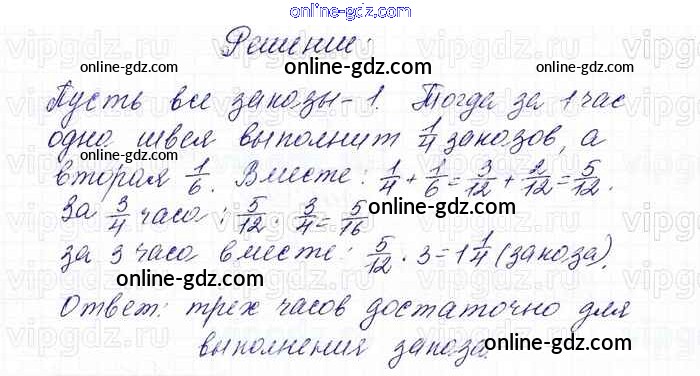 Решение:
Пусть все заказы – 1. Тогда за 1 час
одна швея выполнит 1/4 заказов, а
вторая 1/6. Вместе: 1/4 + 1/6 = 3/12 + 2/12 = 5/12.
За 3/4 часа: 5/12 · 3/4 = 5/16
за 3 часа вместе: 5/12 · 3 = 1 1/4 (заказа).
Ответ: трех часов достаточно для
выполнения заказа.
online-gdz.com
online-gdz.com
online-gdz.com
online-gdz.com
online-gdz.com
online-gdz.com
online-gdz.com
online-gdz.com
online-gdz.com
online-gdz.com
online-gdz.com
online-gdz.com
online-gdz.com